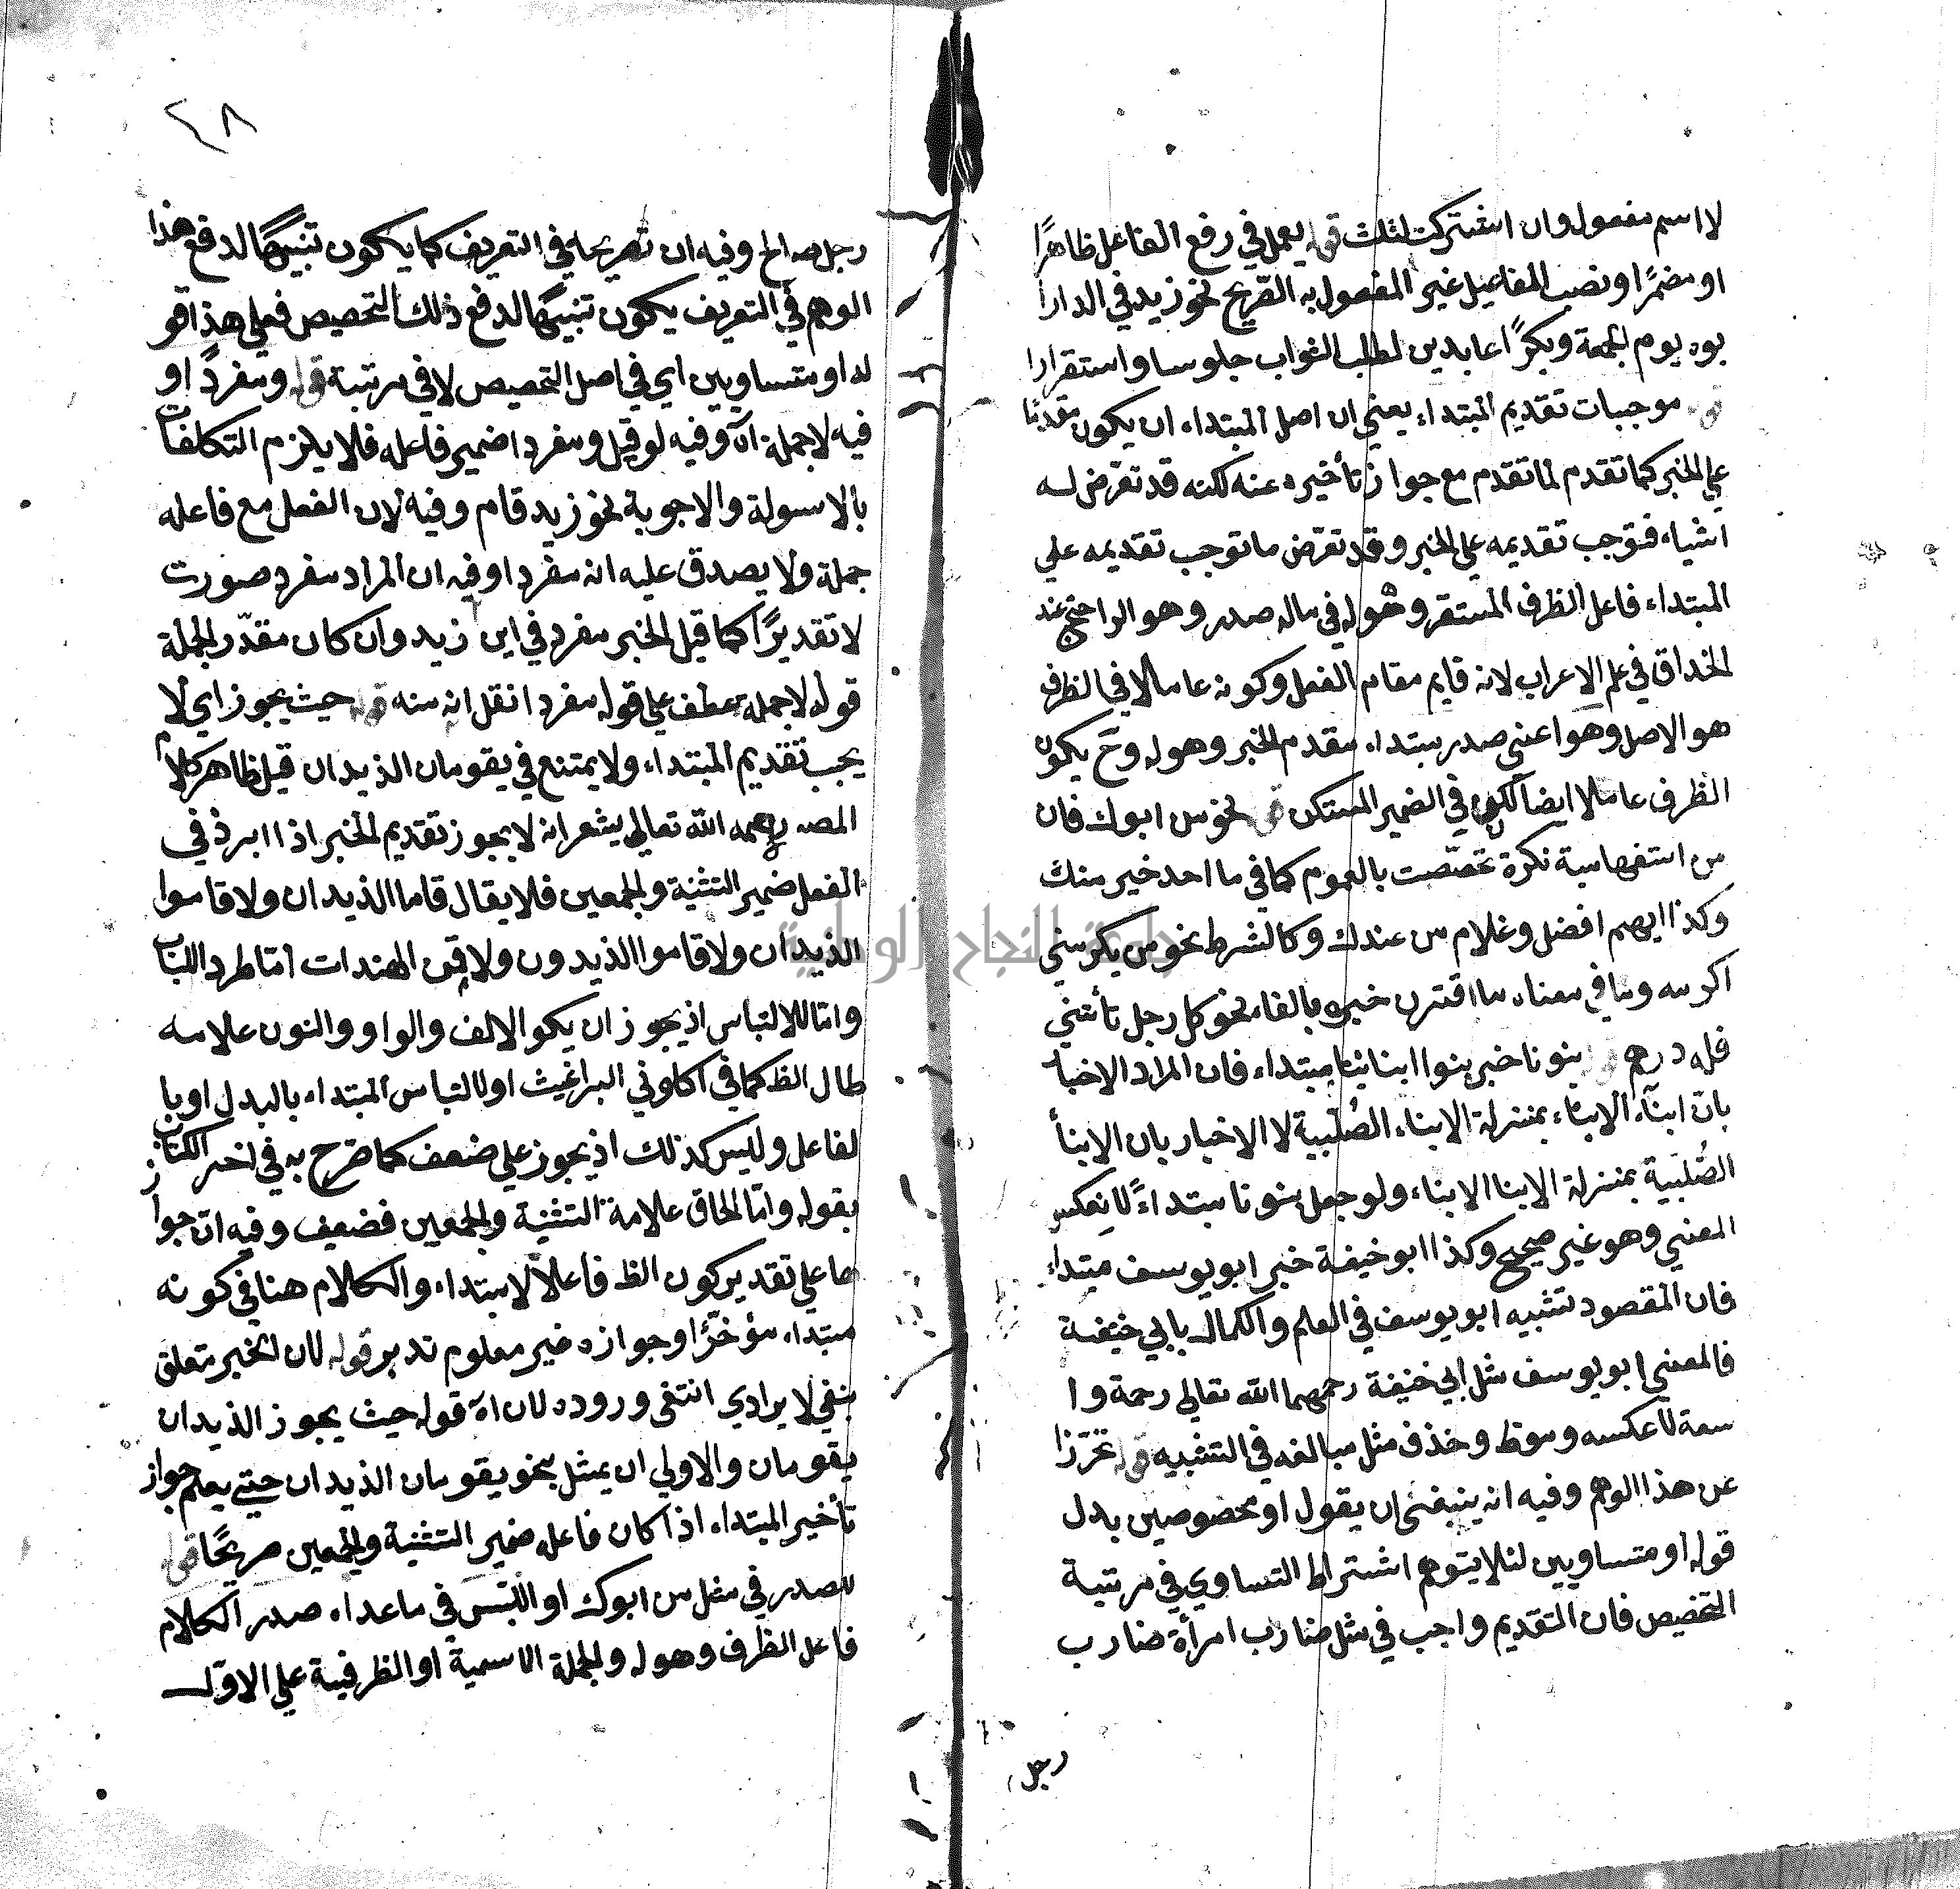 لا اسم مفعول وان اشتركت لثلث قوله يعمل في رفع الفاعل ظاهرًا
او مضمرًا ونصب المفاعيل غير المفعول به الصريح نحو زيد في الدار ا
بوه يوم الجمعة وبكرًا عابدين لطلب الثواب جلوسا واستقرارا
قوله موجبات تقديم المبتداء يعني ان اصل المبتداء ان يكون مقدمًا
علي الخبر كما تقدم لما تقدم مع جواز تأخيره عنه لكنه قد تعرّض له
اشياء فتوجب تقديمه علي الخبر وقد تعرّض ما توجب تقديمه علي
المبتداء فاعل الظرف المستقر وهوله في ماله صدر وهو الراجح عند
الحذاق في علم الاعراب لانه قايم مقام الفعل وكونه عاملا في الظرف
هو الاصل وهو اعني صدر مبتداء مقدم الخبر وهوله وح يكون
الظرف عاملا ايضا لكن في الضمير المستكن قوله نحو من ابوك فان
من استفهامية نكرة تخصّصت بالعموم كما في ما احد خير منك
وكذا ايهم افضل وغلام من عندك وكالشرط نحو من يكرمني
اكرمه وما في معناه ما اقترن خبره بالفاء نحو كل رجل يأتيني
فله درهم قوله بنونا خبر بنوا ابنائنا مبتداء فان المراد الاخبا
بان ابنآء الابناء بمنزلة الابناء الصُلبية لا الاخبار بان الابنأ
الصُلبية بمنزلة الابنا الابناء ولو جعل بنونا مبتداءً لانعكس
المعني وهو غير صحيح وكذا ابو حنيفة خبر ابو يوسف مبتداء
فان المقصود تشبيه ابو يوسف في العلم والكمال بابي حنيفة
فالمعني ابو يوسف مثل ابي حنيفة رحمهما الله تعالي رحمة وا
سعة لا عكسه وسوط وحذف مثل مبالغه في التشبيه قوله تحرّزا
عن هذا الوهم وفيه انه ينبغي ان يقول او مخصوصين بدل
قوله او متساويين لئلا يتوهم اشتراط التساوي في مرتبة
التخصيص فان التقديم واجب في مثل ضارب امرأة ضارب
رجل
٤٨
رجل صالح وفيه ان تصريحه في التعريف كما يكون تنبيهًا لدفع هذا
الوهم في التعريف يكون تنبيهًا لدفع ذلك التخصيص فعلي هذا قو
له او متساويين اي في اصل التخصيص لا في مرتبة قوله ومفردًا و
فيه لا جملة اه وفيه لو قيل ومفردا ضمير فاعله فلا يلزم التكلفات
بالاسولة والاجوبة نحو زيد قام وفيه لان الفعل مع فاعله
جملة ولا يصدق عليه انه مفرد اوفيه ان المراد مفرد صورت
لا تقديرًا كما قيل الخبر مفرد في اين زيد وان كان مقدّر الجملة
قوله لا جملة عطف علي قوله مفردا نقل انه منه قوله حيث يجوز اي لا
يجب تقديم المبتداء ولا يمتنع في يقومان الذيدان قيل ظاهر كلام
المصـ رحمه الله تعالي يشعر انه لا يجوز تقديم الخبر اذا ابرذ في
الفعل ضمير التثنية والجمعين فلا يقال قاما الذيدان ولا قاموا
الذيدان ولا قاموا الذيدون ولا قمن الهندات امّا طرد اللباب
وامّا للالتباس اذ يجوز ان يكوا الالف والواو والنون علامه
طال الظ كما في اكلوني البراغيث او لالتباس المبتداء بالبدل او با
لفاعل وليس كذلك اذ يجوز علي ضعف كما صرّح به في اخر الكتاب
بقوله وامّا الحاق علامة التثنية والجمعين فضعيف وفيه ان جواز
ها علي تقدير كون الظ فاعلاً لا مبتداء والكلام هنا في كونه
مبتداء مؤخرًّا وجوازه غير معلوم تدبر قوله لان الخبر متعلق
بنفي لا يرادي انتفي وروده لان اه قوله حيث يجوز الذيدان
يقومان والاولي ان يمثل بنحو يقومان الذيدان حتي يعلم جواز
تأخير المبتداء اذا كان فاعله ضمير التثنية والجمعين صريحًا قوله
للصدر في مثل من ابوك او اللبّس في ما عداه صدر الكلام
فاعل الظرف وهوله والجملة الاسمية او الظرفية علي الاوّل
جامعة النجاح الوطنية